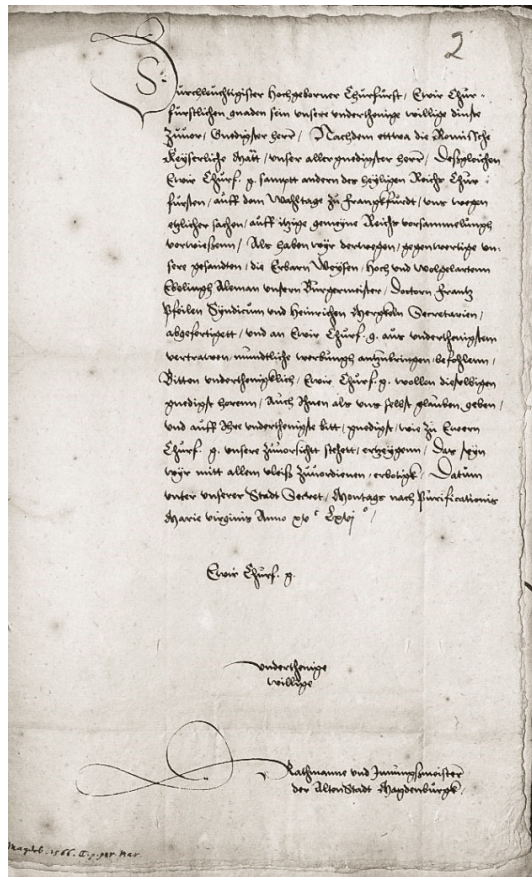 2
Durchleuchtigister Hochgeborner Churfurst, Ewir Chur-
furstlichen gnaden sein unsere underthenige willige dinste
zuuor, Gnedigster herr, Nachdem ettwa die Romissche
Keyserliche Matt, unser allergnedigster herr, Desgleichen
Ewir Churf. g. sampt andern des heyligen Reichs Chur
fursten, auff dem Wahltage zu Franckfurdt, uns wegen
etzlicher sachen, auff itzige gemeyne Reichs vorsammelungh
vorwiessenn, Als haben wyr derwegen, gegenwertige un-
sere gesandten, die Erbarn Weysen, Hoch und Wolgelartenn
Ebelingh Aleman unsern Burgermeister, Doctorn Frantz
Pfeilen Syndicum und Heinrichen Secretarien,
abgefertigett, und an Ewir Churf. g. aus underthenigstem
vertrawen, mundtliche werbungh antzubringen, befohlenn,
Bitten underthenigklich, Ewir Churf. g. wollen dieselbigen
gnedigst horenn, Auch Ihnen als uns selbst glauben geben,
und auff Ihre underthenigste bitt, gnedigst, wie zu Ewern
Churf. g. unsere zuuorsicht stehett, ertzeigenn, Das seyn
wyr mitt allem vleis zuuordienen, erbotigk, Datum
unter unserer Stadt Secret, Montags nach Purificationis
Marie virginis Anno xvc Lxvjo,
Ewir Churf. g.
underthenige
willige
Rathmanne und Innungsmeister
der Alten Stadt Magdenburgk,
Magdeb. 1566.